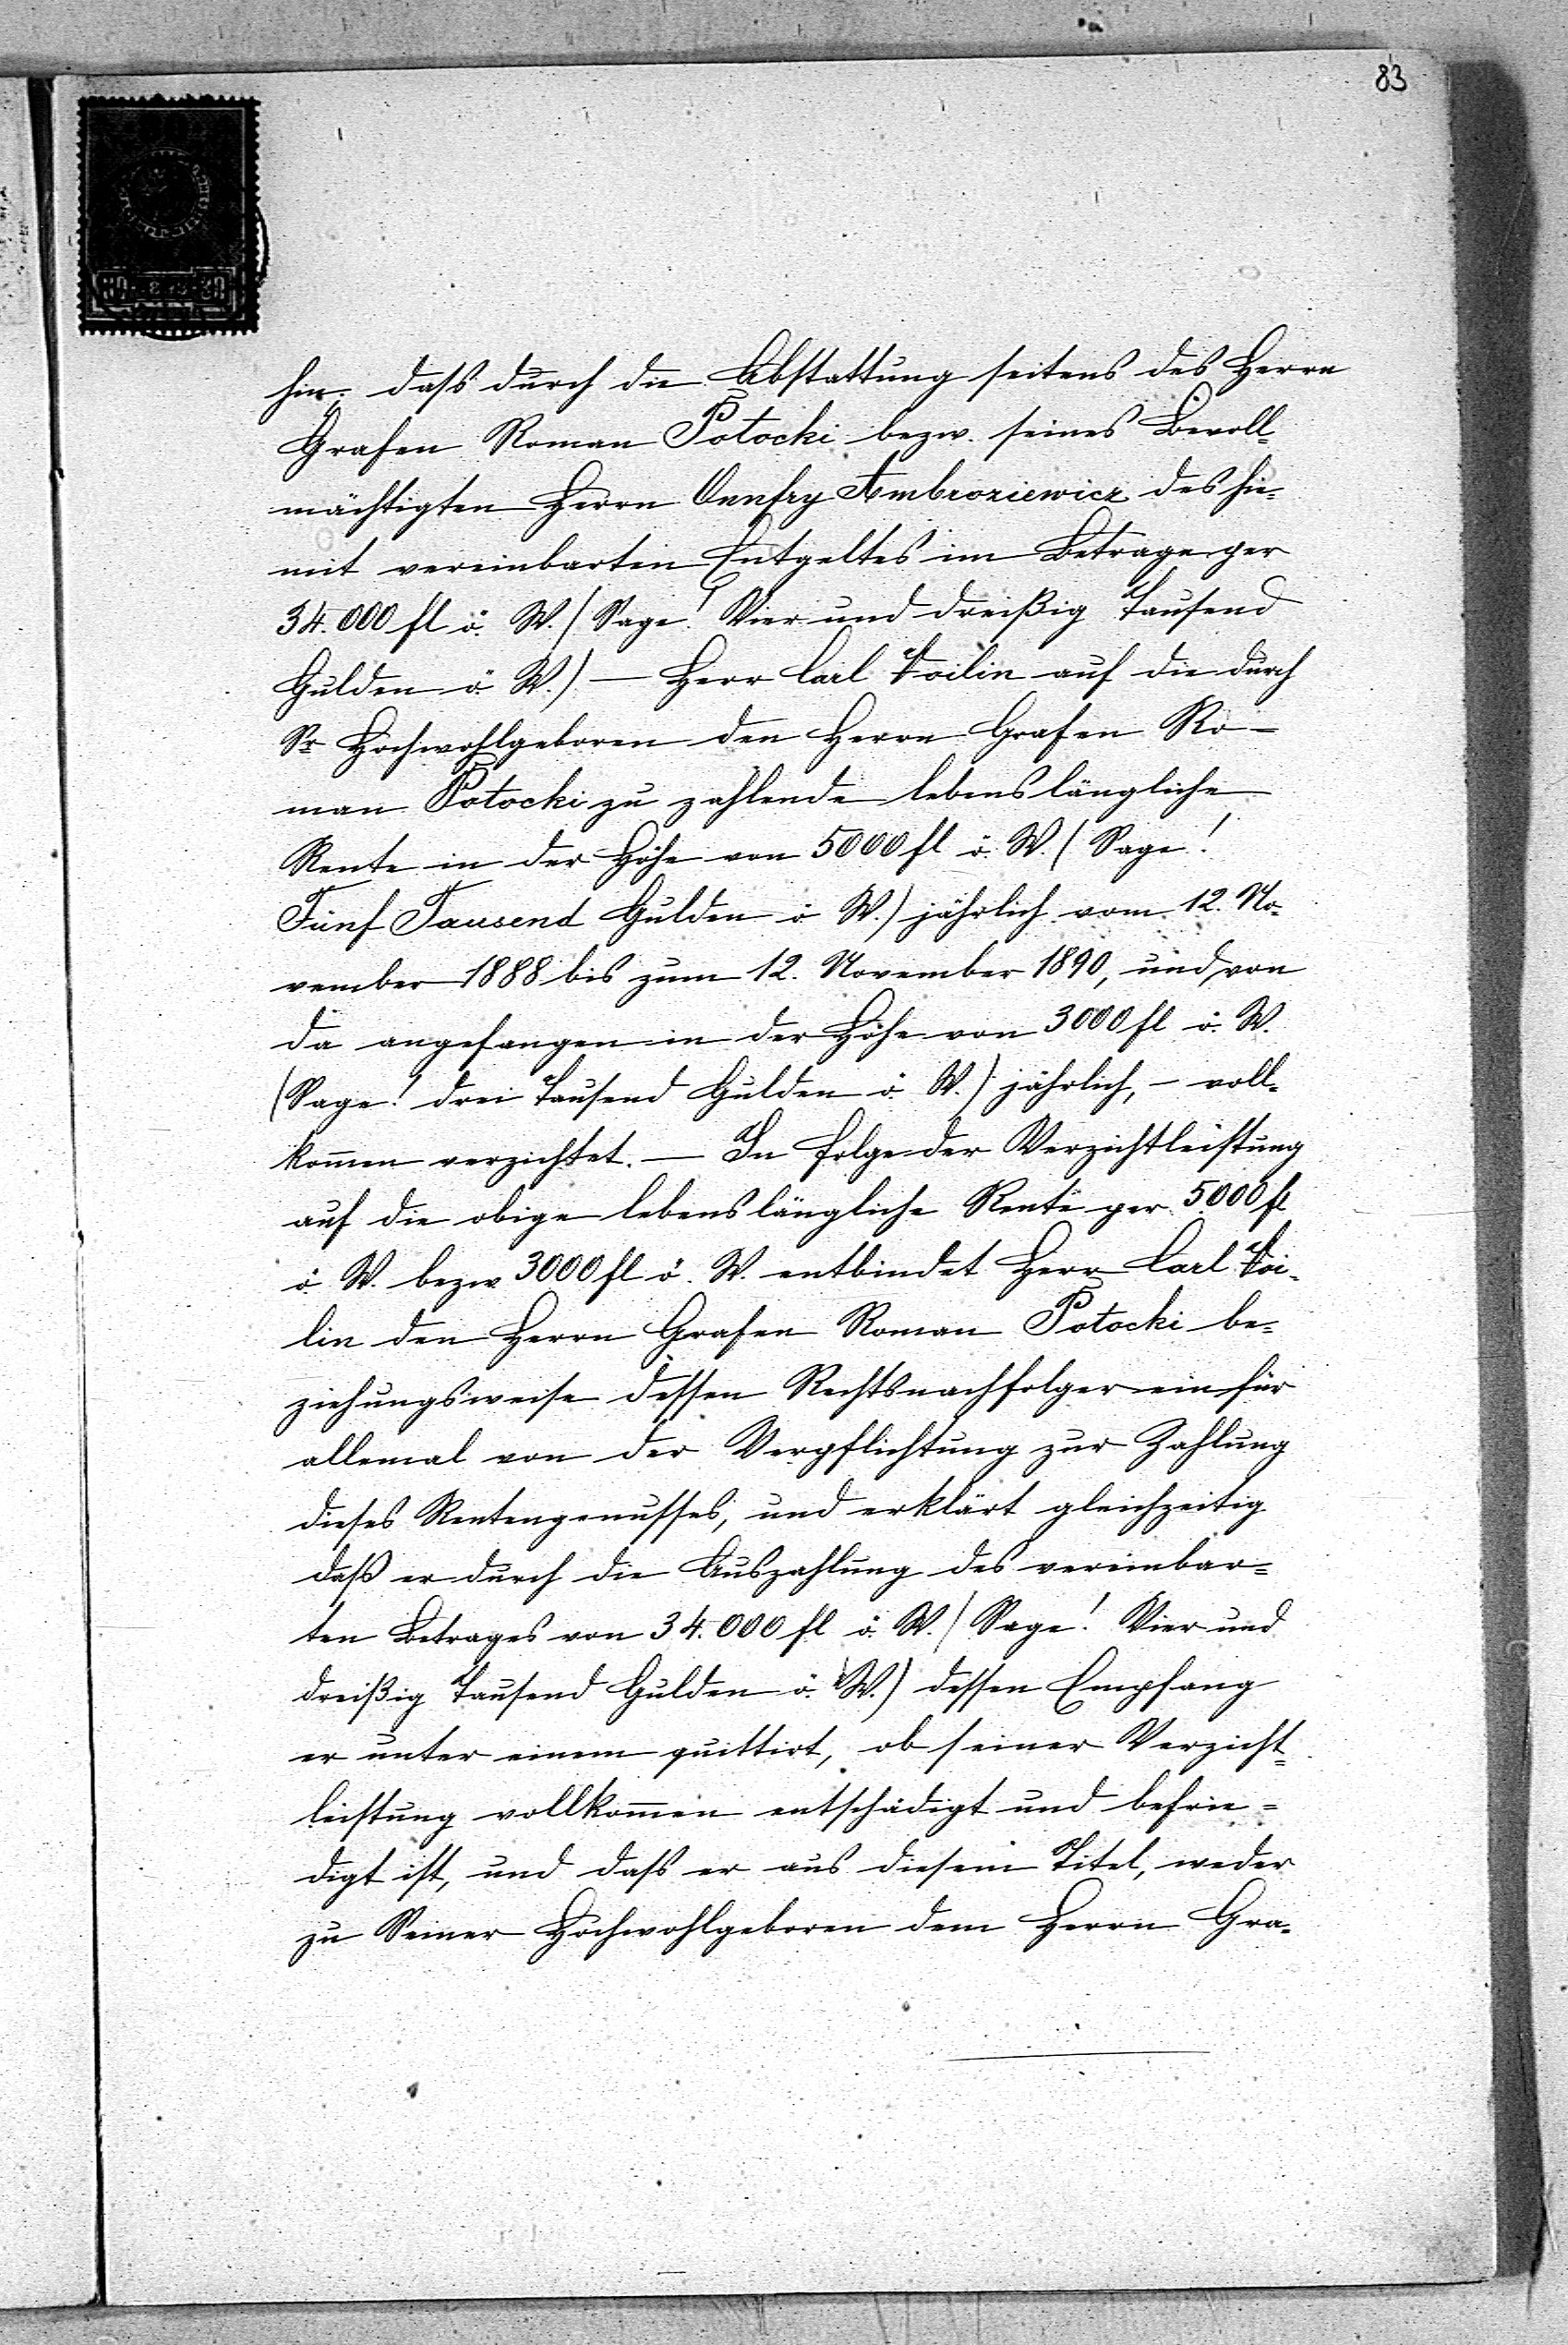 83
hin, dass durch die Abstattung seitens des Herrn
Grafen Roman Potocki bezw. seines Bevoll-
mächtigten Herrn Onufry Ambroziewicz des hie-
mit vereinbarten Entgeltes im Betrage per
34.000 fl ö. W. (Sage! Vier und dreißig Tausend
Gulden ö. W.) — Herr Carl Voilin auf die durch
Sr Hochwohlgeboren den Herrn Grafen Ro-
man Potocki zu zahlende lebenslängliche
Rente in der Höhe von 5000 fl ö. W. (Sage!
Fünf Tausend Gulden ö W.) jährlich vom 12. No-
vember 1888 bis zum 12. November 1890, und von
da angefangen in der Höhe von 3000 fl ö. W.
(Sage! drei Tausend Gulden ö. W.) jährlich, — voll-
kom̅en verzichtet. — In folge der Verzichtleistung
auf die obige lebenslängliche Rente per 5000 fl
ö. W. bezw 3000 fl ö. W. entbindet Herr Carl Voi-
lin den Herrn Grafen Roman Potocki be-
ziehungsweise dessen Rechtsnachfolger ein für
allemal von der Verpflichtung zur Zahlung
dieses Rentengenusses, und erklärt gleichzeitig
daß er durch die Auszahlung des vereinbar=
ten Betrages von 34.000 fl ö. W. (Sage! Vier und
dreißig Tausend Gulden ö. W.) dessen Empfang
er unter einem quittirt, ob seiner Verzicht=
leistung vollkom̅en entschädigt und befrie=
digt ist, und dass er aus diesem Titel, weder
zu Seiner Hochwohlgeboren dem Herrn Gra-